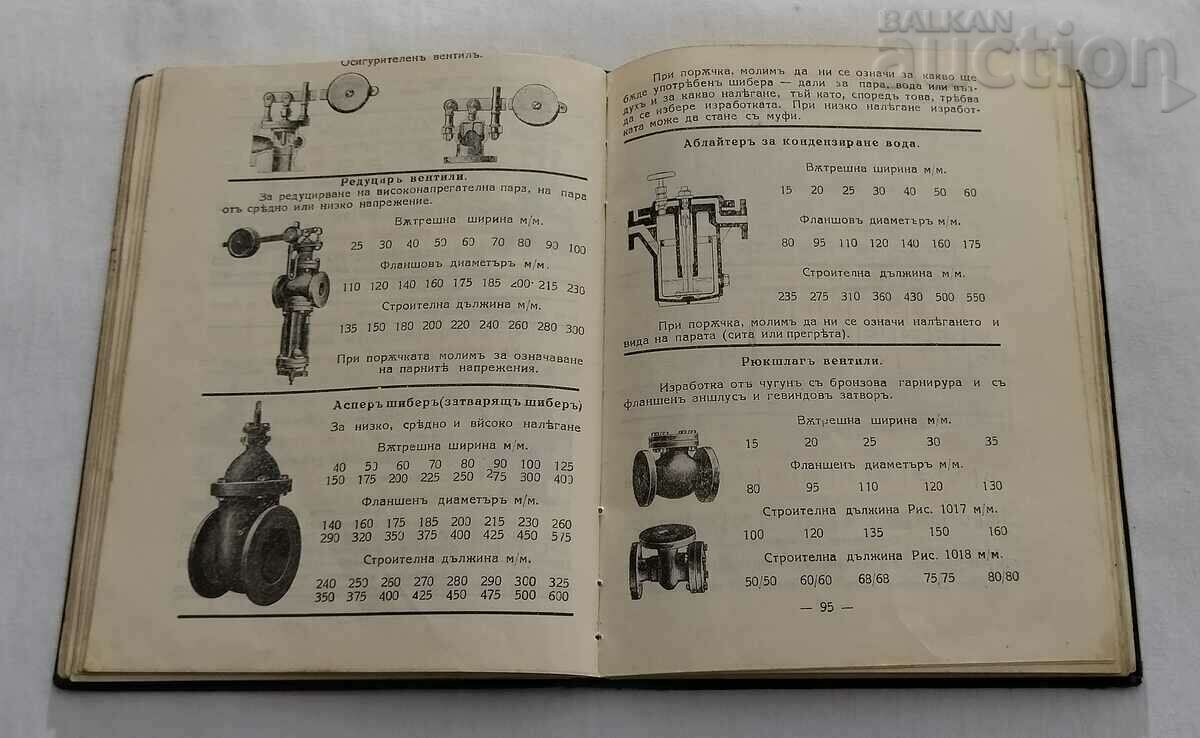 BALKAN
auction
Осигурителенъ вентилъ.
Редуциръ вентили.
За редуцирване на високонапрегателна пара, на пара
отъ срѣдно или низко напрежение.
Вѫтрешна ширина м/м.
25 30 40 50 60 70 80 90 100
Фланшовъ диаметъръ м/м.
110 120 140 160 175 185 200 215 230
Строителна дължина м/м.
135 150 180 200 220 240 260 280 300
При порѫчката молимъ за означаване
на парнитѣ напрежения.
Асперъ шиберъ (затварящъ шиберъ)
За низко, срѣдно и високо налѣгане
Вѫтрешна ширина м/м.
40 50 60 70 80 90 100 125
150 175 200 225 250 275 300 400
Фланшенъ диаметъръ м/м.
140 160 175 185 200 215 230 260
290 320 350 375 400 425 450 575
Строителна дължина м/м.
240 250 260 270 280 290 300 325
350 375 400 425 450 475 500 600
При порѫчка, молимъ да ни се означи за какво ще
бѫде употрѣбенъ шибера — дали за пара, вода или въз-
духъ и за какво налѣгане, тъй като, споредъ това, трѣбва
да се избере изработката. При низко налѣгане изработ-
ката може да стане съ муфи.
Аблайтеръ за кондензиране вода.
Вѫтрешна ширина м/м.
15 20 25 30 40 50 60
Фланшовъ диаметъръ м/м.
80 95 110 120 140 160 175
Строителна дължина м.м.
235 275 310 360 430 500 550
При порѫчка, молимъ да ни се означи налѣгането и
вида на парата (сита или прегрѣта).
Рюкшлагъ вентили.
Изработка отъ чугунъ съ бронзова гарнирура и съ
фланшенъ аншлусъ и гевиндовъ затворъ.
Вѫтрешна ширина м/м.
15 20 25 30 35
Фланшовъ диаметъръ м/м.
80 95 110 120 130
Строителна дължина Рис. 1017 м/м.
100 120 135 150 160
Строителна дължина Рис. 1018 м/м.
50/50 60/60 68/68 75/75 80/80
— 95 —